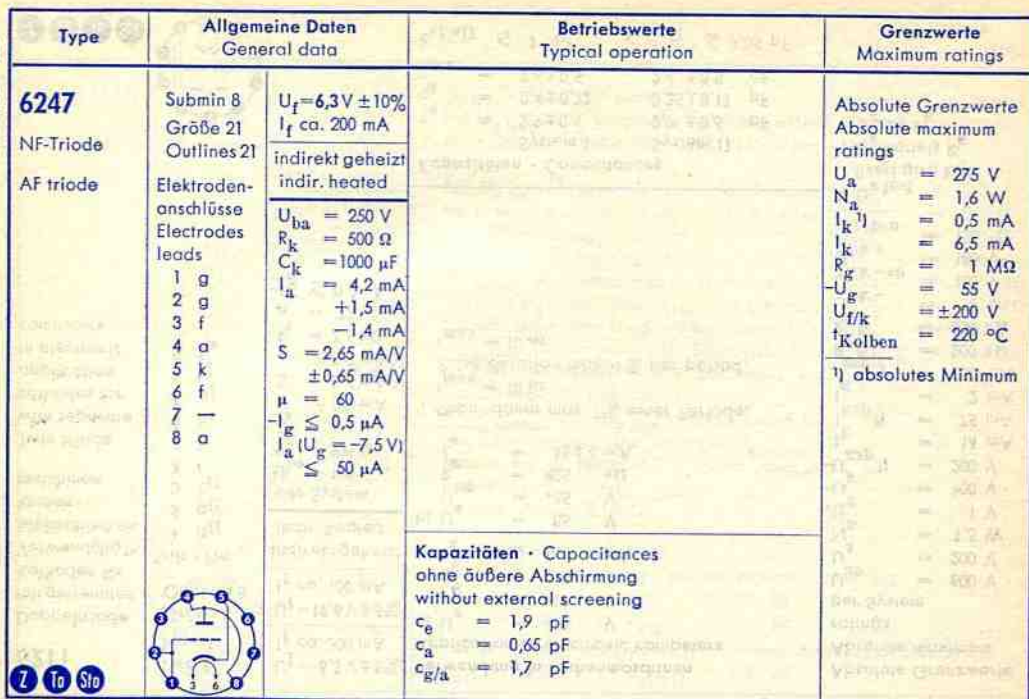 Type
Allgemeine Daten
General data
Betriebswerte
Typical operation
Grenzwerte
Maximum ratings
6247
NF-Triode
AF triode
Submin 8
Größe 21
Outlines 21
Elektroden-
anschlüsse
Electrodes
leads
1 g
2 g
3 f
4 a
5 k
6 f
7 —
8 a
U_f = 6,3 V ± 10%
I_f ca. 200 mA
indirekt geheizt
indir. heated
U_ba = 250 V
R_k = 500 Ω
C_k = 1000 µF
I_a = 4,2 mA
+1,5 mA
−1,4 mA
S = 2,65 mA/V
±0,65 mA/V
µ = 60
−I_g ≦ 0,5 µA
I_a (U_g = −7,5 V)
≦ 50 µA
Kapazitäten · Capacitances
ohne äußere Abschirmung
without external screening
c_e = 1,9 pF
c_a = 0,65 pF
c_g/a = 1,7 pF
Absolute Grenzwerte
Absolute maximum
ratings
U_a = 275 V
N_a = 1,6 W
I_k ¹) = 0,5 mA
I_k = 6,5 mA
R_g = 1 MΩ
−U_g = 55 V
U_f/k = ±200 V
t_Kolben = 220 °C
¹) absolutes Minimum
4 5
3 6
2 7
1 3 6 8
Z To Sto